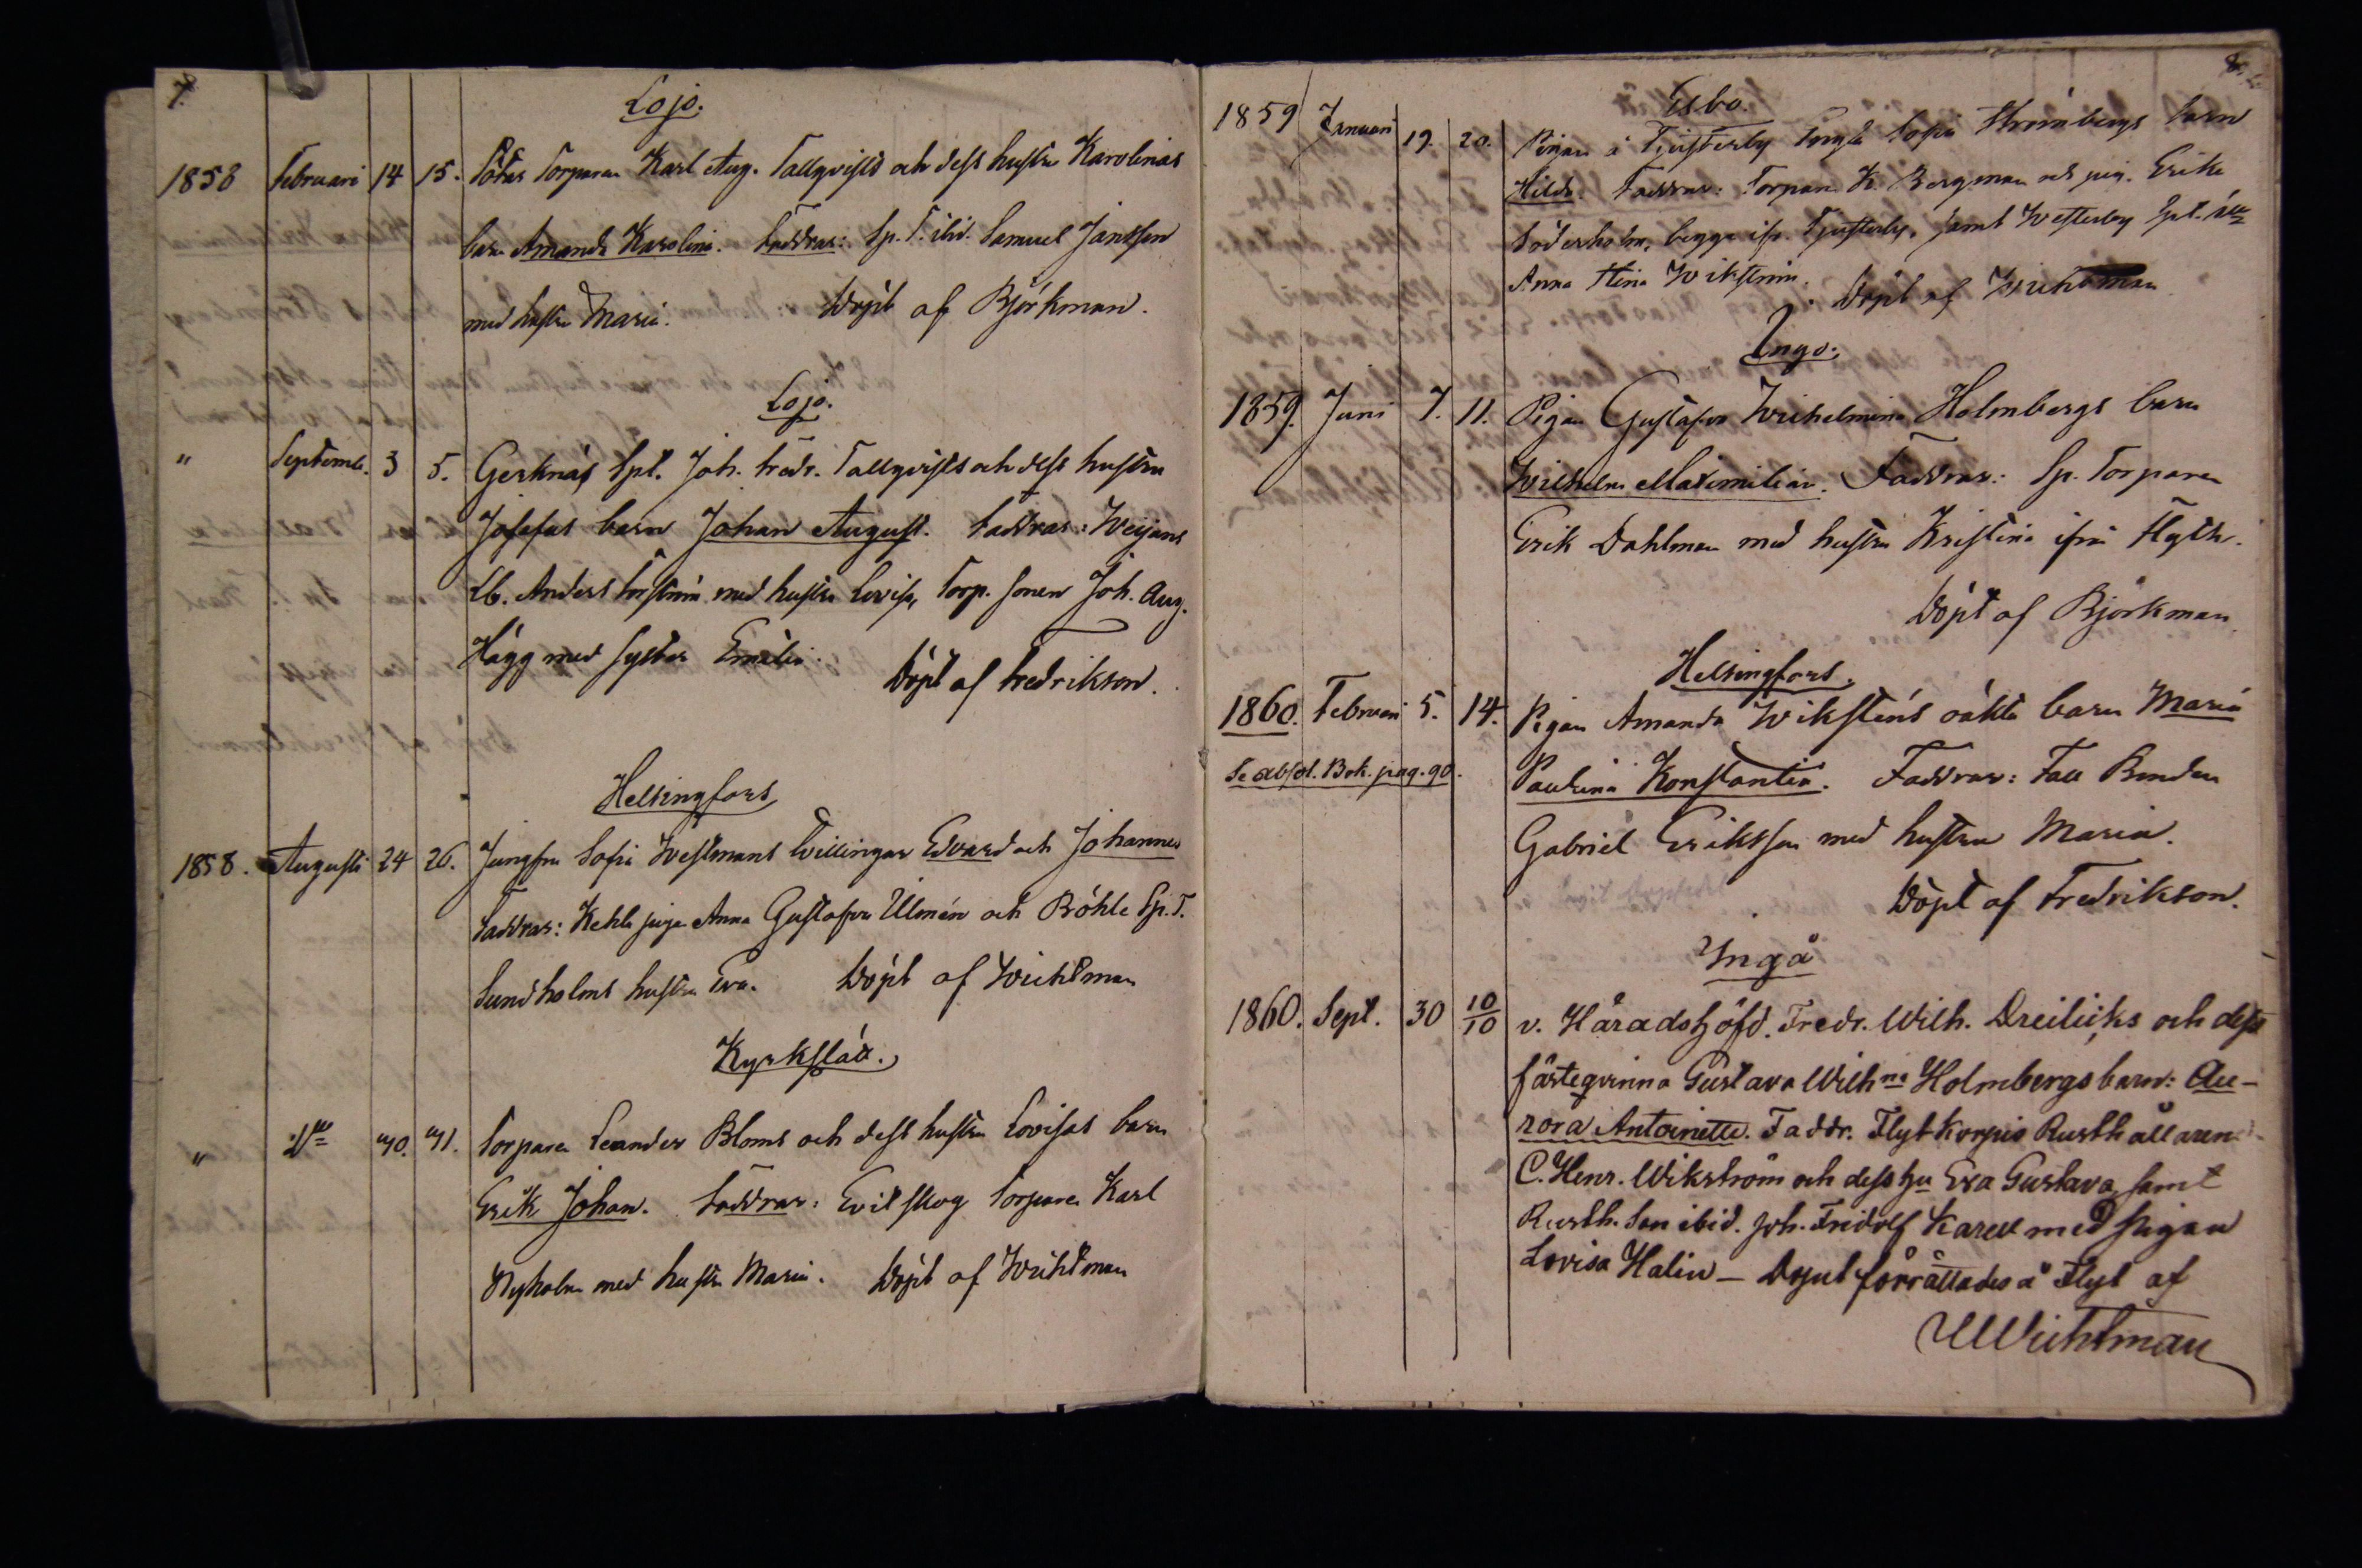 7.
Lojo.
1858 Februari 14 15. Torparen Karl Aug. Tallqvists och dess hustru Karolinas
barn Amanda Karolina. Faddrar: Sp. T. ibid. Samuel Jansson
med hustru Maria. Döpt af Björkman.
Lojo.
" Septemb. 3 5. Gerknäs Spt. Joh. Fredr. Tallqvists och dess hustru
Josefas barn Johan August. Faddrar: Weijans
Lb. Anders med hustru Lovisa, Torp. sonen Joh. Aug.
Hägg med syster Emilia. Döpt af Fredrikson.
Helsingfors
1858. Augusti 24 26. Jungfru Sofia Westmans tvillingar Edvard och Johannes
Faddrar: Kehla piga Anna Gustafva Ulmén och Böhle Sp. T.
Sundholms hustru Eva. Döpt af Wichtman
Kyrkslätt.
" D:o 40. 41. Torparen Leander Bloms och dess hustru Lovisas barn
Erik Johan. Faddrar: Evitskog Torparen Karl
Nyholm med hustru Maria. Döpt af Wichtman
8.
Esbo.
1859 Januari 19. 20. Pigan å Sofia Strömbergs barn
Hilda. Faddrar: Torparen K. Bergman och pig. Erika
Söderholm, begge ifr. samt Westerby Spt.
Anna Stina Wikström. Döpt af Wichtman
Ingo.
1859. Juni 7. 11. Pigan Gustafva Wilhelmina Holmbergs barn
Wilhelm Maximilian. Faddrar: Sp. Torparen
Erik Dahlman med hustru Kristina ifrån Flyt.
Döpt af Björkman
Helsingfors.
1860. Februari 5. 14. Pigan Amanda Wiksténs oäkta barn Maria
Se absol. Bok. pag. 90. Paulina Konstantia. Faddrar: Tall Bonden
Gabriel Eriksson med hustru Maria.
Döpt af Fredrikson.
Ingå
1860. Sept. 30 10/10 v. Häradshöfd. Fredr. Wilh. Dreilicks och dess
fästeqvinna Gustava Wilh:na Holmbergs barn: Au-
rora Antoinette. Faddr. Flyt Korpis Rusthållaren
C. Henr. Wikström och dess hu Eva Gustava, samt
Rusth. Son ibid. Joh. Fridolf Karell med pigan
Lovisa Halin – Dopet förrättades å Flyt af
Wichtman